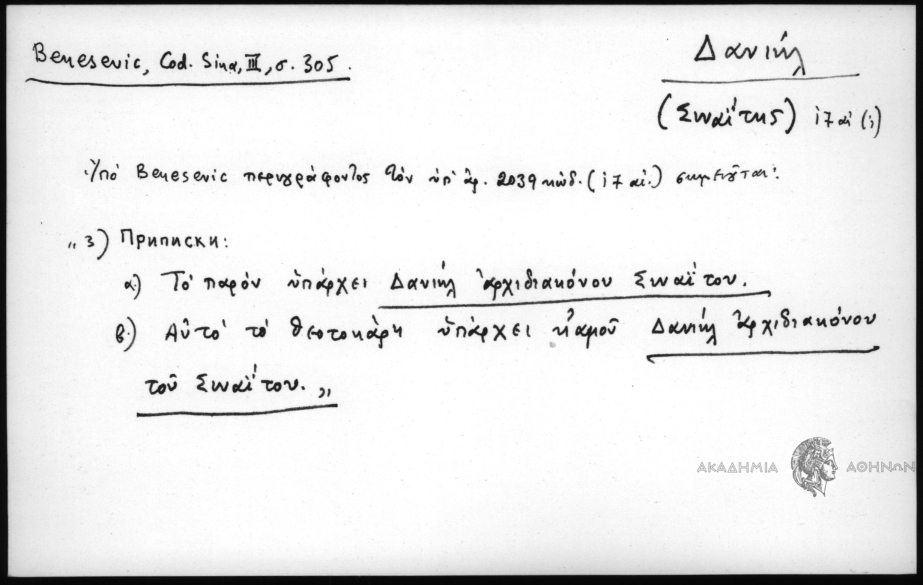 Benesevic, Cod. Sina, III, σ. 305.
Δανιήλ
(Σιναΐτης) ιζ αἰ (;)
Ὑπό Benesevic περιγράφοντος τόν ὑπ' ἀρ. 2039 κώδ. (ιζ αἰ.) σημειοῦται:
„3) Приписки:
α) Τό παρόν ὑπάρχει Δανιήλ ἀρχιδιακόνου Σιναΐτου.
β) Αὐτό τό θεοτοκάρη ὑπάρχει κἀμοῦ Δανιήλ ἀρχιδιακόνου
τοῦ Σιναΐτου.„
ΑΚΑΔΗΜΙΑ ΑΘΗΝΩΝ